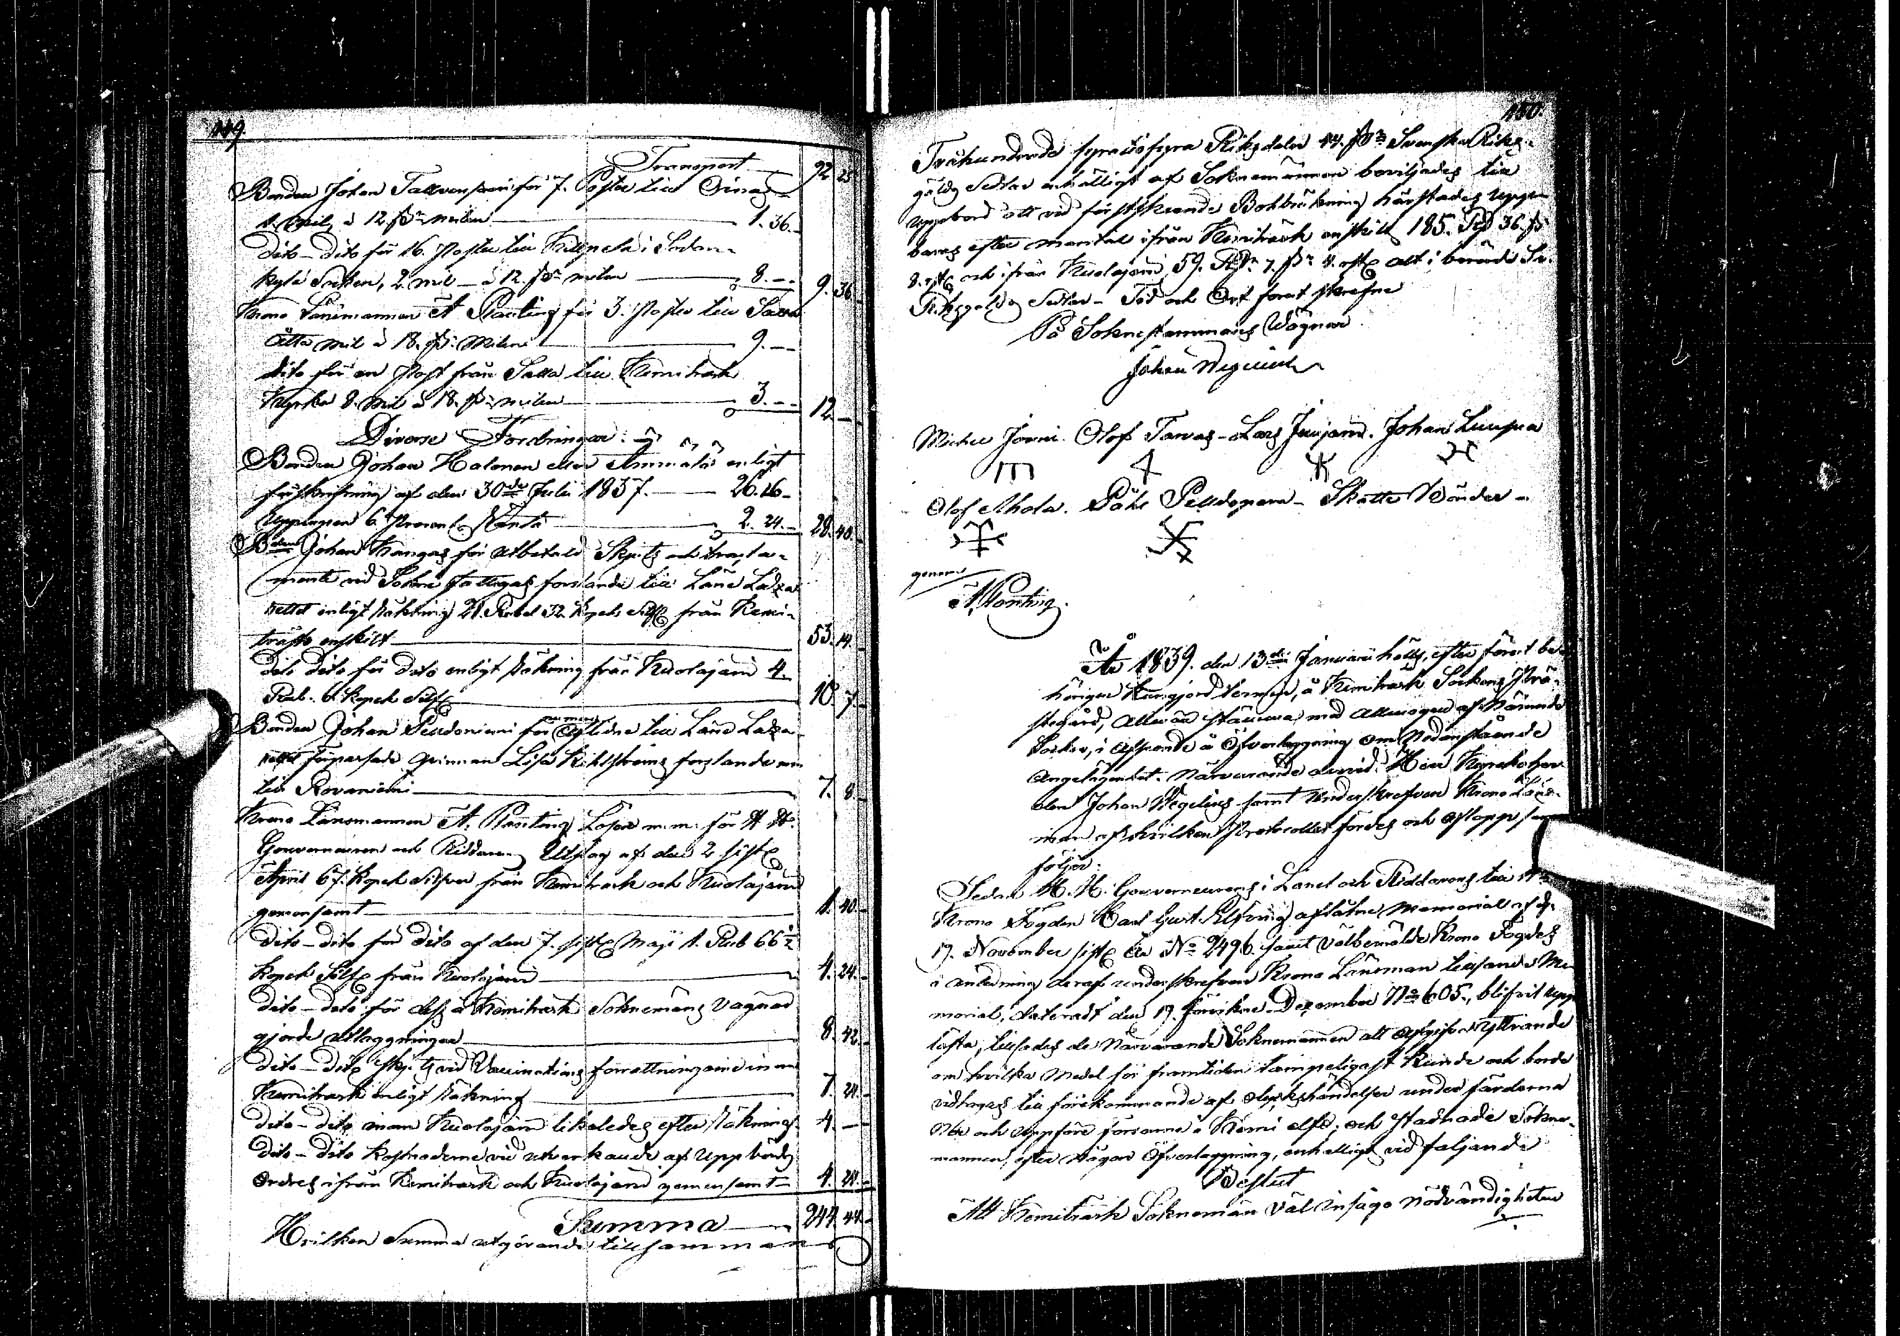 449.
Transport 92 25
Bonden Johan Tallvensaari för 7. Poster till
1. Mil, à 12 sk. milen 1. 36.
Dito - dito för 16. Poster till i Sodan-
kylä Socken, 2. mil à 12. sk. milen 8. - - 9. 36.
Krono Länsmannen A. Ponting för 3. Poster till Salla
Åtta mil à 18. sk. Milen 9. - -
dito för en Post från Salla till Kemiträsk
Kyrka 8. mil à 18. sk. milen 3. - - 12 -
Diverse Fordringar:
Bonden Johan Halonen eller Ammälä enligt
förskrifning af den 30de Julii 1837. 26. 16.
Upplupen 6. Procents Ränta 2. 24. 28. 40.
Bonden Johan Kangas för utbetald Skjuts och trakta-
mente vid Sockne Fattigas forslande till Läne Laza-
rettet enligt Räkning 21 Rubel 32. Kopek Silf. från Kemi-
träsk enskilt 53. 14.
Dito dito för dito enligt Räkning från Kuolajärvi 4
Rub. 6. Kopek Silf. 10. 7.
Bonden Johan för till Läne Laza-
rettet förpassade qvinnan Lisa Kihlströms forslande
till Rovaniemi 7. 8.
Krono Länsmannen A. Ponting Lösen m. m. för H. H.
Gouverneuren och Riddarens Utslag af den 2. sistl.
April 67. Kopek Silfver från Kemiträsk och Kuolajärvi
gemensamt 1. 40.
Dito - dito för dito af den 7. sistl. Maji 1. Rub 66 ½
Kopek Silf. från Kuolajärvi 4. 24.
Dito - dito för dess å Kemiträsk Soknemäns vägnar
gjorde utläggningar 8. 42.
Dito - dito skjuts vid Vaccinations förrättningarne inom
Kemiträsk enligt Räkning 7. 24.
Dito - dito inom Kuolajärvi likaledes efter Räkning 4. -
Dito - Dito kostnaderne vid utverkande af Uppbörds
Ordres ifrån Kemiträsk och Kuolajärvi gemensamt 4. 24.
Summa 244. 44.
Hvilken Summa utgörande tillsammans
450.
Tvåhundrade fyratiofyra Riksdaler 44. sk. Svenska Riks-
gälds Sedlar enhälligt af Soknemännen beviljades till
uppbörd att vid förstskeende Bokbräkning härstädes uppe-
bäras efter mantal ifrån Kemiträsk enskilt 185. Rd 36. sk
8. rst. och ifrån Kuolajärvi 59. Rd. 7. sk. 4. rst. alt i berörde Sv.
Riksgälds Sedlar - Tid och Ort förut skrefne
På Soknestämmans Vägnar
Johan Wegelius
Michel Jouni. Olof Tarvas - Lars Junjärvi. Johan Luspa
Olof Ahola. Påhl Pelkoperä - Skatte Bönder -
genom
A. Ponting.
År 1839. den 13de Januarii hölls, efter förut be-
hörigen kungjord termin, å Kemiträsk Sockens Prä-
stegård, allmän stämma med Allmogen af Närande
Socken, i afseende å Öfverläggning om Nedanstående
Angelägenhet. Närvarande dervid: Herr Kyrkoher-
den Johan Wegelius samt Underskrefven Krono Läns-
man af hvilken Protocollet fördes och aflopp som
följer:
Sedan H. H. Gouverneurens i Länet och Riddarens till Hr
Krono Fogden Carl Gust. aflåtne Memorial af d.
17. November sistl. år No 2496. samt Välbemälde Krono Fogdes
i anledning deraf underskrefven Krono Länsman tillsände Me-
morial, dateradt den 19. December No 605., blifvit upp-
läste, tillsades de Närvarande Soknemännen att afgifva yttrande
om hvilka Medel för framtiden lämpeligast kunde och borde
vidtagas till förekommande af olyckshändelser under färderna
Ned och uppföre forsarne i Kemi elf; och stadnade Sokne-
männen, efter någon Öfverläggning, enhälligt vid följande
Beslut
Att Kemiträsk Soknemän väl insågo nödvändigheten